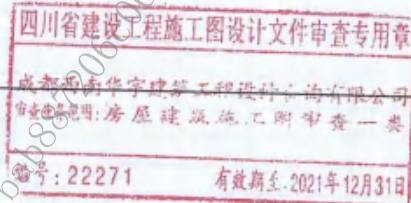 四川省建设工程施工图设计文件审查专用章
成都西南华宇建筑工程设计咨询有限公司
审查业务范围:房屋建筑施工图审查一类
编号:22271 有效期至:2021年12月31日